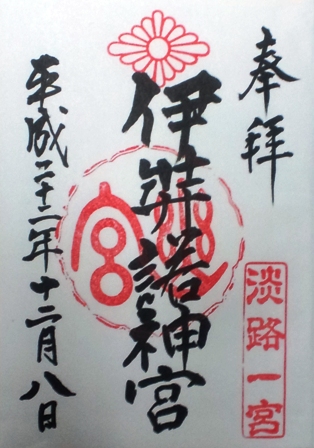 奉拝
淡路一宮
伊弉諾神宮
平成二十二年十二月八日